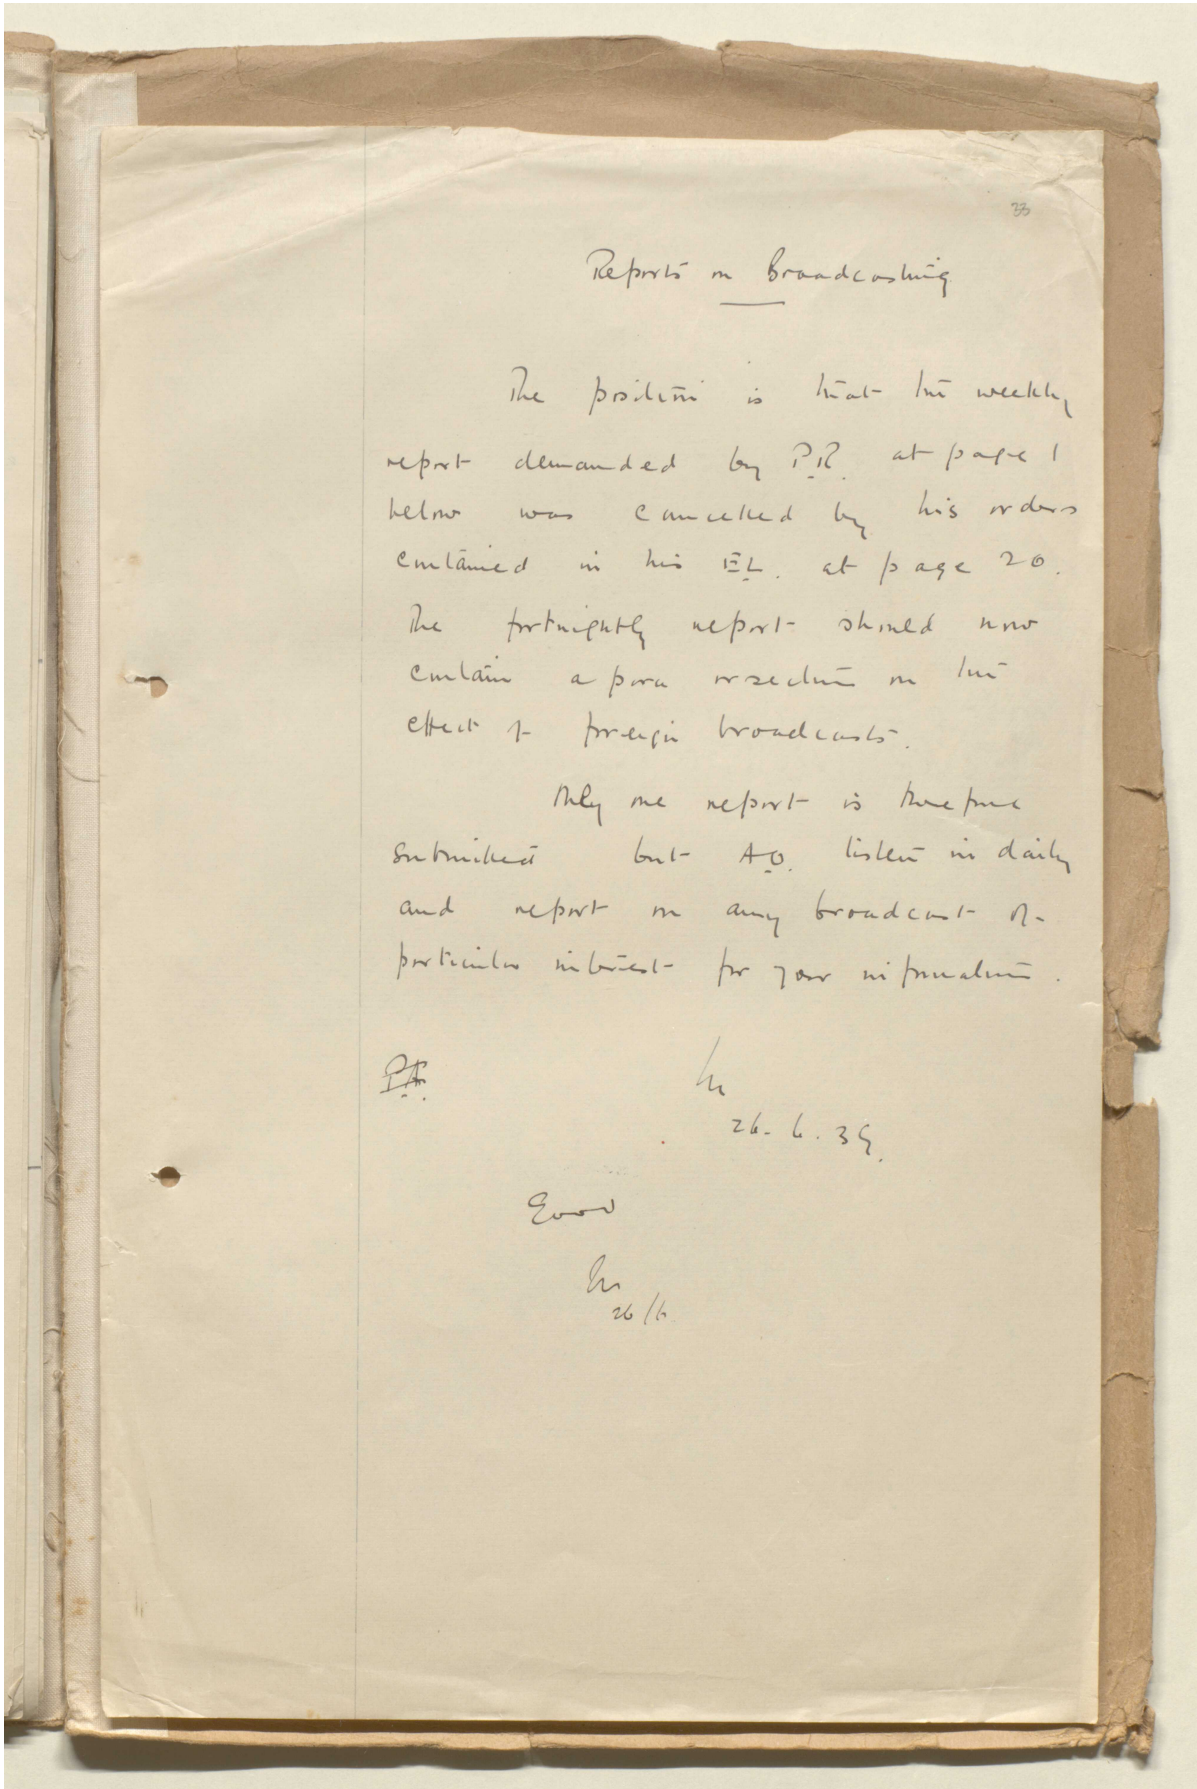 33
Reports on Broadcasting
The position is that the weekly
report demanded by P.R. at page 1
below was cancelled by his orders
contained in his E.L. at page 20.
The fortnightly report should now
contain a para or section on the
effect of foreign broadcasts.
Only one report is therefore
submitted but A.O. listen in daily
and report on any broadcast of
particular interest for your information.
P.A.
26.6.39.
Good
26/6